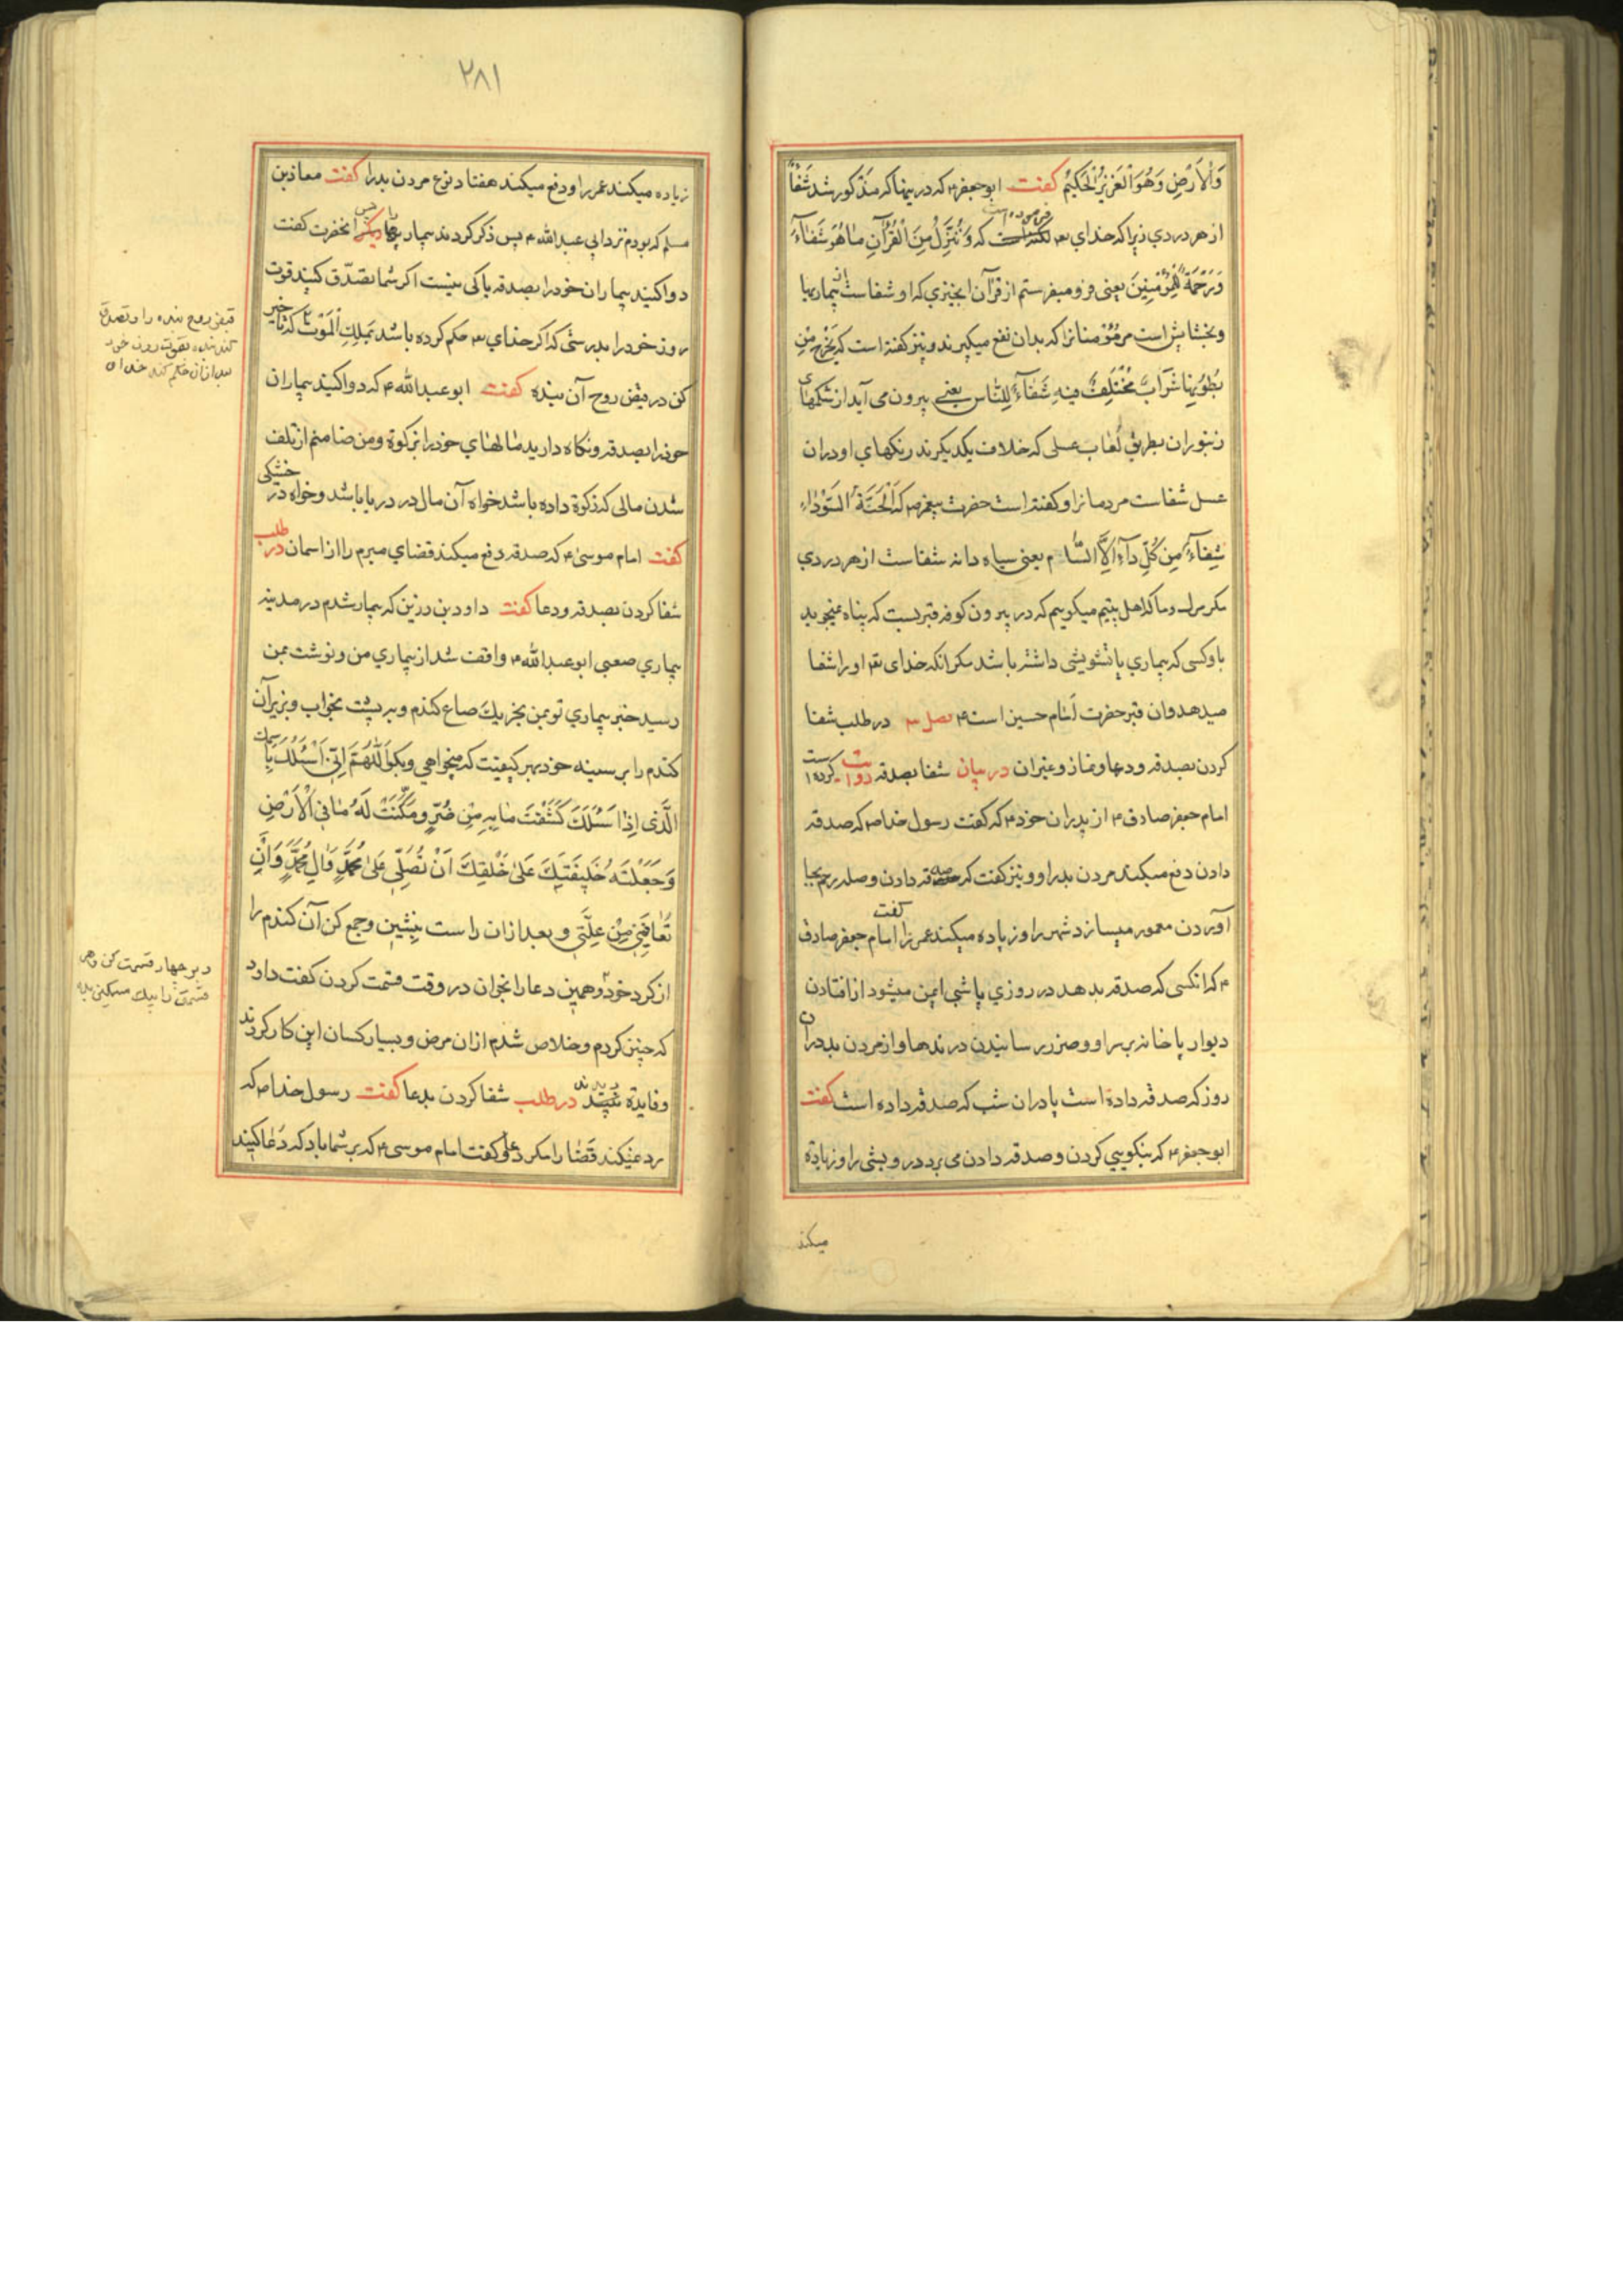 وَالْاَرْضِ وَهُوَ الْعَزِیْزُ الْحَکِیْمُ کفت ابوجعفر۴ که در ینها که مذکور شد شَفٰآءً
از هر دردی زیرا که خدای تع که وَنُنَزِّلُ مِنَ الْقُرْآنِ مٰا هُوَ شَفٰآءٌ
وَرَحْمَةٌ لِلْمُؤْمِنِینَ یعنی فرو میفرستم از قرآن انچیزی که او شفاست ان بیماریها
و بخشایش است مر مؤمنانرا که بدان نفع میکیرند و نیز کفته است که یَخْرُجُ مِنْ
بُطُوْنِهٰا شَرٰابٌ مُخْتَلِفٌ فیهِ شَفٰآءٌ لِلنّٰاسِ یعنی بیرون می آید از شکمهای
زنبوران بطریق لُعٰاب عسلی که خلاف یکدیکرند رنکهای او در ان
عسل شفاست مردمانرا و کفته است حضرت پیغمبر ص که اَلْحَبَّةُ السَّوْدٰاءِ
شِفٰآءٌ مِنْ کُلِّ دٰآءٍ اِلاَّ السّٰامْ یعنی سیاه دانه شفاست از هر دردی
مکر مرک و ما که اهل بیتیم میکوییم که در بیرون کوفه قبریست که پناه نمیجوید
باو کسی که بیماری یا تشویشی داشته باشد مکر انکه خدای تع او را شفا
میدهد و ان قبر حضرت اِمٰام حسین است۴ فصل ۳ در طلب شفا
کردن بصدقه و دعا و نماز و غیر ان در بیان شفا بصدقه روایت کرده است
امام جعفر صادق۴ از پدران خود۴ که کفت رسول خدا ص که صدقه
دادن دفع میکند مردن بد را و نیز کفت که صدقه دادن و صله رحم بجا
آوردن معمور میسازد شهر را و زیاده میکند عمر را کفت امام جعفر صادق
۴ که انکسی که صدقه بدهد در روزی یا شبی ایمن میشود از افتادن
دیوار یا خانه بر او و ضرر رسانیدن درندها و از مردن بد در ان
روز که صدقه داده است یا در ان شب که صدقه داده است کفت
ابوجعفر۴ که نیکویی کردن و صدقه دادن می برد درویشی را و زیاده
میکند
۲۸۱
زیاده میکند عمر را و دفع میکند هفتاد نوع مردن بد را کفت معاذ بن
مسلم که بودم نزد ابی عبدالله ۴ پس ذکر کردند بیماریها را پس انحضرت کفت
دوا کنید بیماران خود را بصدقه باکی نیست اکر شما تصدّق کنید قوت
روز خود را بدرستی که اکر خدای تع حکم کرده باشد بملکِ الْمَوْت که تأخیر
کن در قبض روح آن بنده کفت ابوعبدالله ۴ که دوا کنید بیماران
خود را بصدقه و نکاه دارید مٰالهٰای خود را بزکوة و من ضامنم از تلف
شدن مالی که زکوة داده باشد خواه آن مال در دریا باشد و خواه در خشکی
کفت امام موسی۴ که صدقه دفع میکند قضای مبرم را از اسمان در طلب
شفا کردن بصدقه و دعا کفت داود بن رزین که بیمار شدم در مدینه
بیماری صعبی ابوعبدالله ۴ واقف شد از بیماری من و نوشت بمن
رسید خبر بیماری تو بمن بخر یکَ صاع کندم و بر پشت بخواب و بزیر آن
کندم را بر سینه خود بهر کیفیت که میخواهی و بکو اَللّٰهُمَّ اِنّی اَسْئَلُکَ بِاسمک
الَّذی اِذٰا سَئَلَکَ کَشَفْتَ مٰا بِهِ مِنْ ضُرٍّ وَمَکَّنْتَ لَهُ مٰا فِی الْاَرْضِ
وَجَعَلْتَهُ خَلِیفَتَکَ عَلیٰ خَلْقِکَ اَنْ تُصَلِّی عَلیٰ مُحَمَّدٍ وَاٰلِ مُحَمَّدٍ وَاَنْ
تُعٰافِیَنِی مِنْ عِلَّتِی و بعد از ان راست بنشین و جمع کن آن کندم را
از کرد خود و همین دعا را بخوان در وقت قسمت کردن کفت داود
که چنین کردم و خلاص شدم از ان مرض و بسیار کسان این کار کردند
و فایدة دیدند در طلب شفا کردن بدعا کفت رسول خدا ص که
رد نمیکند قَضٰا را مکر دعا و کفت امام موسی۴ که بر شما باد که دُعٰا کنید
قبض روح بنده را و تصدق
کند بنده بقوت روز خود
بعد از ان حکم کند خدای
و بر چهار قسمت کن و هر
قسمتی را بیک مسکین بده